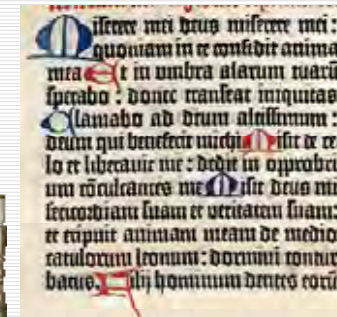 Miserere mei deus miserere mei:
quoniam in te confidit anima
mea Et in umbra alarum tuarū
sperabo: donec transeat iniquitas
Clamabo ad deum altissimum:
deum qui benefecit michi Misit de ce
lo et liberavit me: dedit in opprobri
um cōculcantes me Misit deus mi
sericordiam suam et veritatem suam:
et eripuit animam meam de medio
catulorum leonum: dormivi contur
batus. Filij hominum dentes eorū